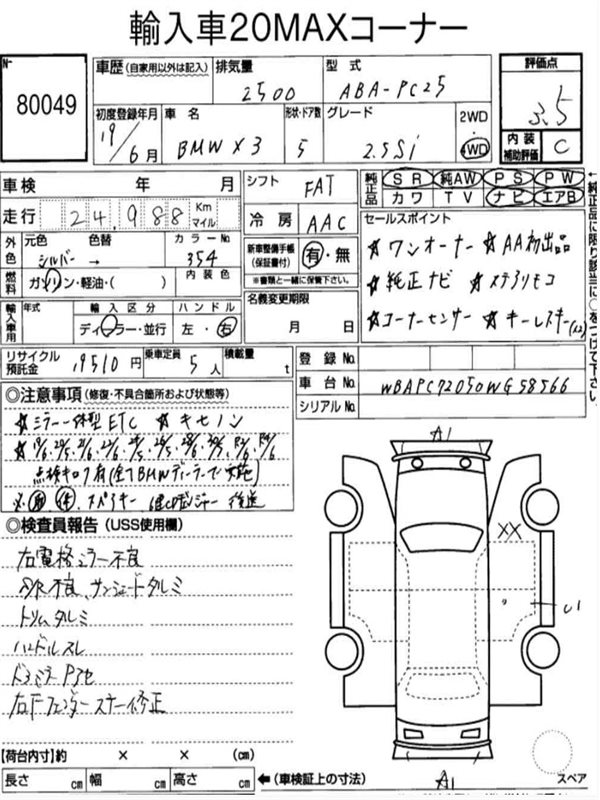 輸入車20MAXコーナー
№ 80049
車歴 (自家用以外は記入) 排気量 2500 型式 ABA-PC25 評価点 3.5
初度登録年月 19年/6月 車名 BMW X3 形状・ドア数 5 グレード 2.5Si 2WD 4WD 内装補助評価 C
車検 年 月 シフト FAT 純正品 SR 純AW PS PW
カワ TV ナビ エアB
走行 24,988 Km マイル 冷房 AAC
セールスポイント
外色 元色 シルバー 色替 → カラー№ 354 新車整備手帳(保証書付) 有・無
※書類と一緒に保管下さい。
☆ワンオーナー ☆AA初出品
燃料 ガソリン・軽油・( ) 内装色
☆純正ナビ
輸入車用 年式 輸入区分 ディーラー・並行 ハンドル 左・右 名義変更期限 月 日
☆コーナーセンサー
←純正品に限り該当に○をつけて下さい。
リサイクル預託金 19510円 乗車定員 5人 積載量 t 登録№
車台№ WBAPC72050WG58566
シリアル№
◎注意事項 (修復・不具合箇所および状態等)
☆ミラー一体型ETC ☆キセノン
点検キロク有(全てBMWディーラーで実施)
スペアキー
◎検査員報告 (USS使用欄)
右電格ミラー不良
不良、サンシェードタルミ
トリムタルミ
ハンドルスレ
右Fフェンダーステー修正
A1
XX
U1
A1
スペア
【荷台内寸】約 × × (㎝)
長さ ㎝ 幅 ㎝ 高さ ㎝ ←(車検証上の寸法)